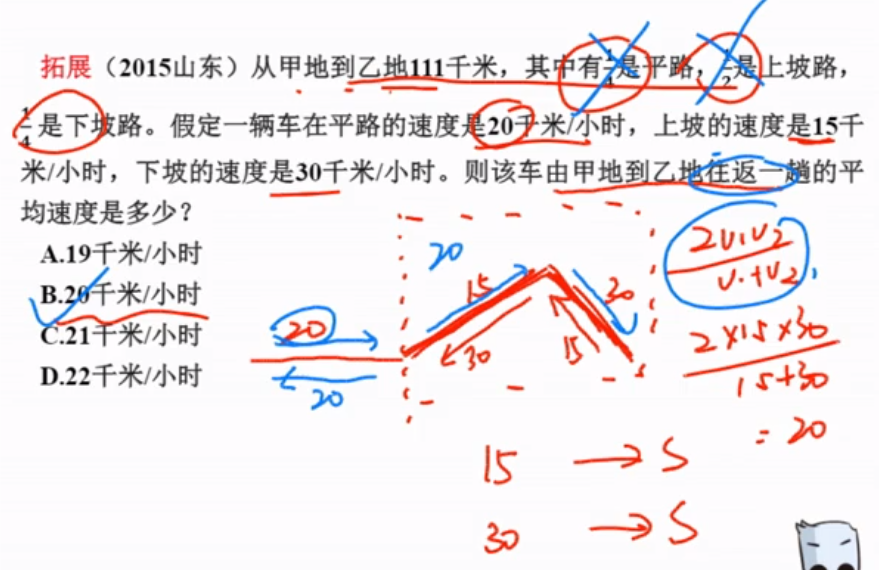 拓展（2015山东）从甲地到乙地111千米，其中有1/4是平路，1/2是上坡路，
1/4是下坡路。假定一辆车在平路的速度是20千米/小时，上坡的速度是15千
米/小时，下坡的速度是30千米/小时。则该车由甲地到乙地往返一趟的平
均速度是多少？
A.19千米/小时
B.20千米/小时
C.21千米/小时
D.22千米/小时
20
15
30
2V1V2
V1+V2
20
30
15
2×15×30
15+30
=20
20
15 → S
30 → S